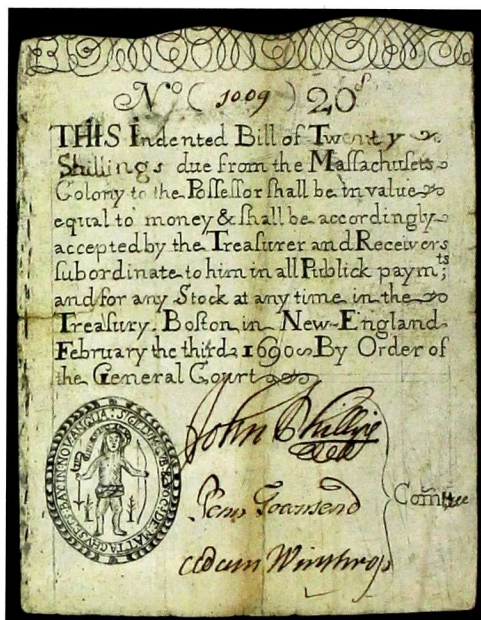 No ( 1009 ) 20s
THIS Indented Bill of Twenty
Shillings due from the Maſſachuſets
Colony to the Poſſeſſor ſhall be in value
equal to money & ſhall be accordingly
accepted by the Treaſurer and Receivers
ſubordinate to him in all Publick paymts;
and for any Stock at any time in the
Treaſury. Boſton in New-England
February the third 1690 By Order of
the General Court
John Phillips
Penn Townsend
Adam Winthrop
Comttee